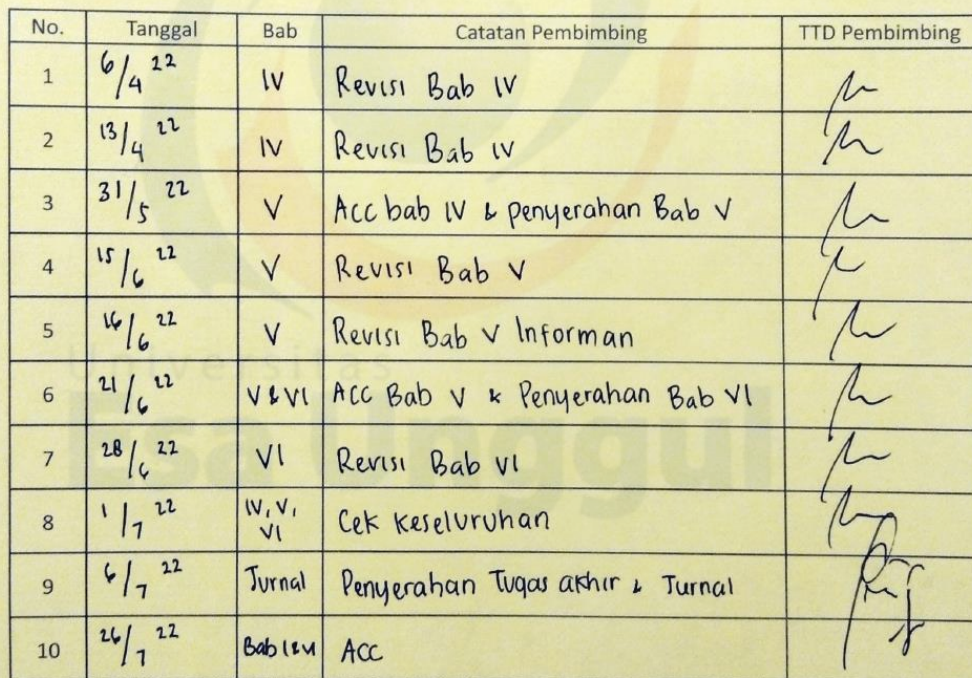 No. Tanggal Bab Catatan Pembimbing TTD Pembimbing
1 6/4 22 IV Revisi Bab IV
2 13/4 22 IV Revisi Bab IV
3 31/5 22 V Acc bab IV & penyerahan Bab V
4 15/6 22 V Revisi Bab V
5 16/6 22 V Revisi Bab V Informan
Universitas
6 21/6 22 V & VI Acc Bab V & Penyerahan Bab VI
Esa Unggul
7 28/6 22 VI Revisi Bab VI
8 1/7 22 IV, V, VI Cek Keseluruhan
9 6/7 22 Jurnal Penyerahan Tugas akhir & Jurnal
10 26/7 22 Bab ACC